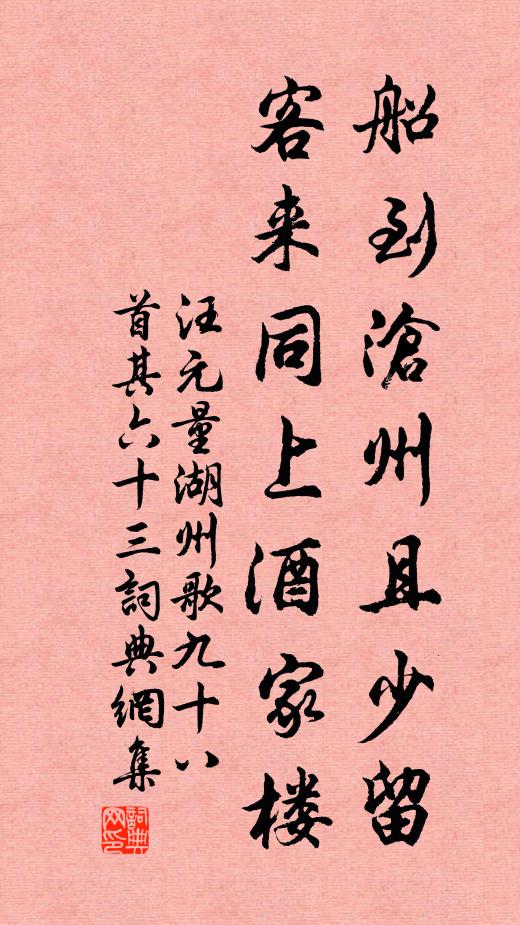 船到滄州且少留
客来同上酒家楼
汪元量湖州歌九十八
首其六十三詞典網集
詞典网印